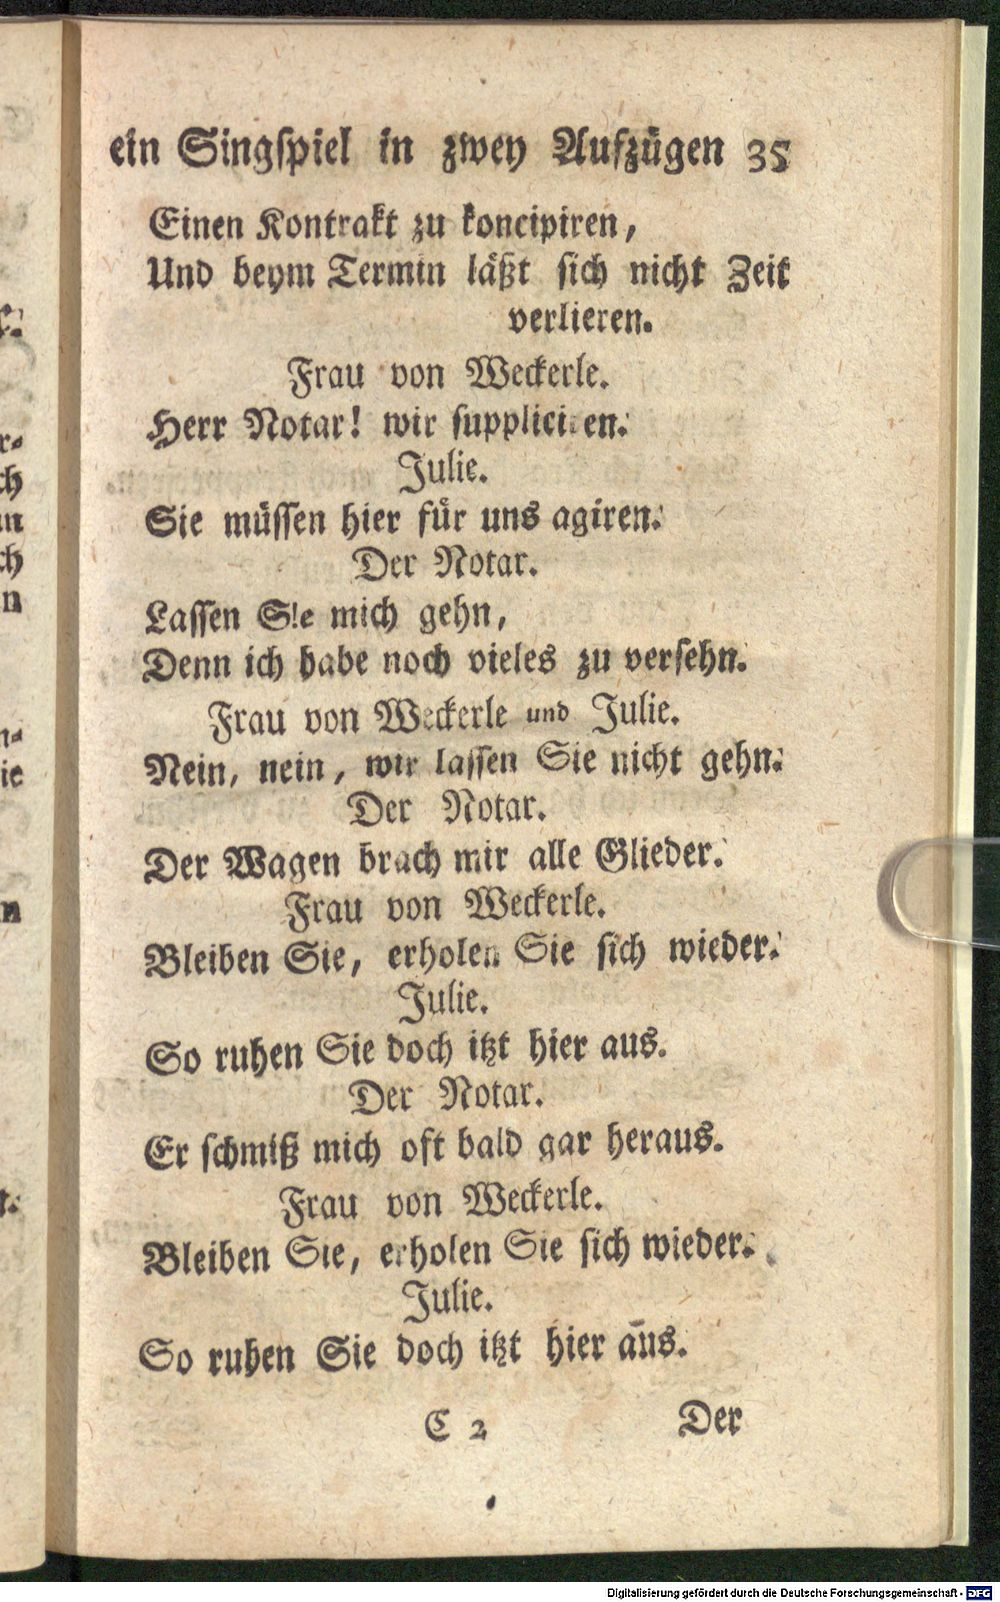 ein Singspiel in zwey Aufzügen 35
Einen Kontrakt zu koncipiren,
Und beym Termin läßt sich nicht Zeit
verlieren.
Frau von Weckerle.
Herr Notar! wir suppliciren.
Julie.
Sie müssen hier für uns agiren.
Der Notar.
Lassen Sie mich gehn,
Denn ich habe noch vieles zu versehn.
Frau von Weckerle und Julie.
Nein, nein, wir lassen Sie nicht gehn.
Der Notar.
Der Wagen brach mir alle Glieder.
Frau von Weckerle.
Bleiben Sie, erholen Sie sich wieder.
Julie.
So ruhen Sie doch itzt hier aus.
Der Notar.
Er schmiß mich oft bald gar heraus.
Frau von Weckerle.
Bleiben Sie, erholen Sie sich wieder.
Julie.
So ruhen Sie doch itzt hier aus.
C 2 Der
Digitalisierung gefördert durch die Deutsche Forschungsgemeinschaft - DFG